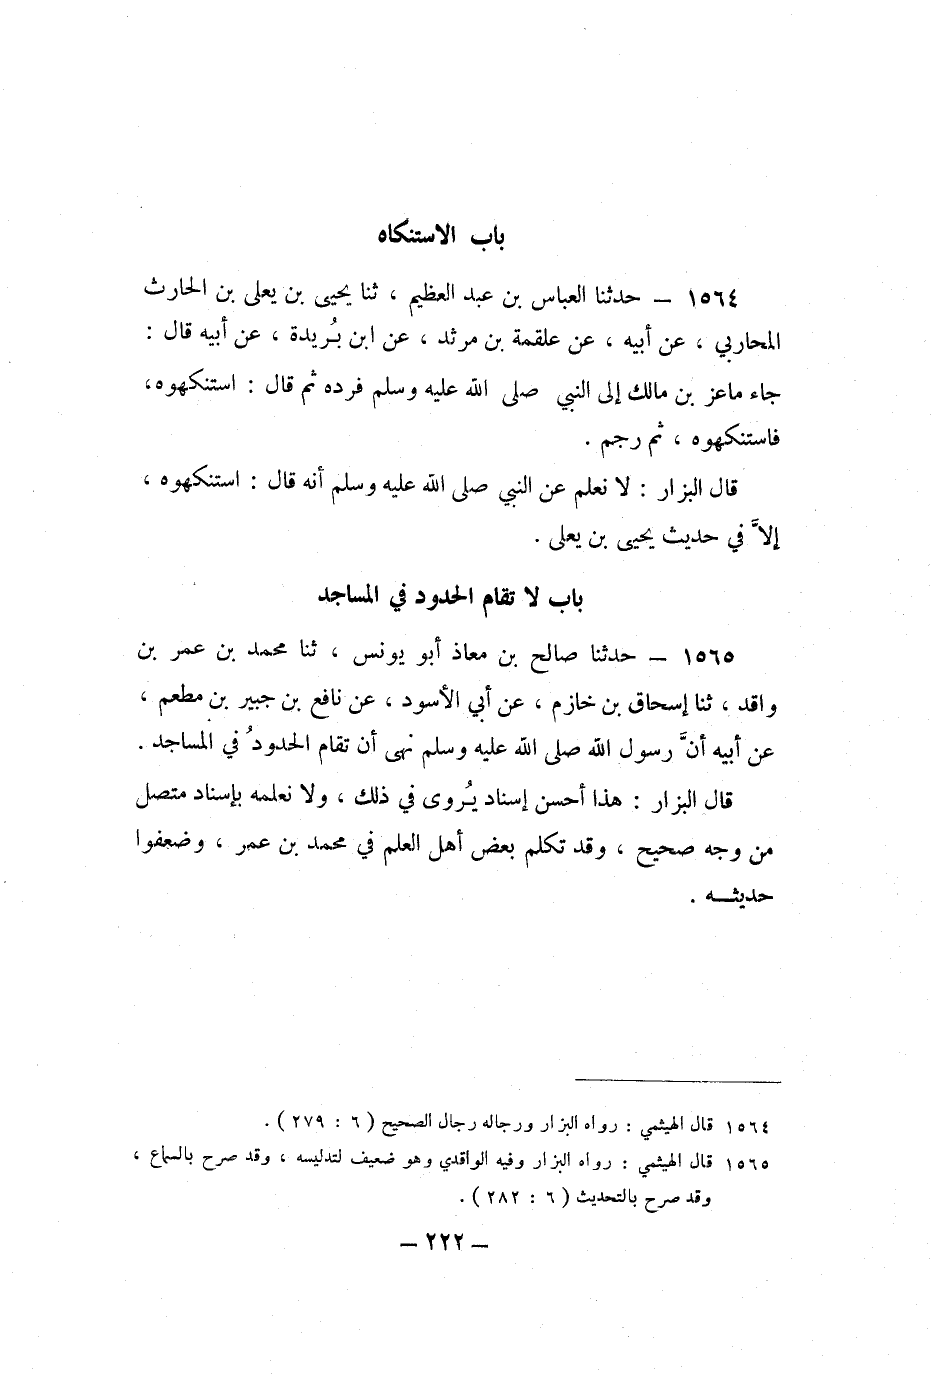 باب الاستنكاه
١٥٦٤ – حدثنا العباس بن عبد العظيم ، ثنا يحيى بن يعلى بن الحارث
المحاربي ، عن أبيه ، عن علقمة بن مرثد ، عن ابن بُريدة ، عن أبيه قال :
جاء ماعز بن مالك إلى النبي صلى الله عليه وسلم فرده ثم قال : استنكهوه،
فاستنكهوه ، ثم رجم .
قال البزار : لا نعلم عن النبي صلى الله عليه وسلم أنه قال : استنكهوه ،
إلاَّ في حديث يحيى بن يعلى .
باب لا تقام الحدود في المساجد
١٥٦٥ – حدثنا صالح بن معاذ أبو يونس ، ثنا محمد بن عمر بن
واقد ، ثنا إسحاق بن خازم ، عن أبي الأسود ، عن نافع بن جبير بن مطعم ،
عن أبيه أنَّ رسول الله صلى الله عليه وسلم نهى أن تقام الحدودُ في المساجد .
قال البزار : هذا أحسن إسناد يُروى في ذلك ، ولا نعلمه بإسناد متصل
من وجه صحيح ، وقد تكلم بعض أهل العلم في محمد بن عمر ، وضعفوا
حديثـــه .
١٥٦٤ قال الهيثمي : رواه البزار ورجاله رجال الصحيح ( ٦ : ٢٧٩ ) .
١٥٦٥ قال الهيثمي : رواه البزار وفيه الواقدي وهو ضعيف لتدليسه ، وقد صرح بالسماع ،
وقد صرح بالتحديث ( ٦ : ٢٨٢ ) .
– ٢٢٢ –